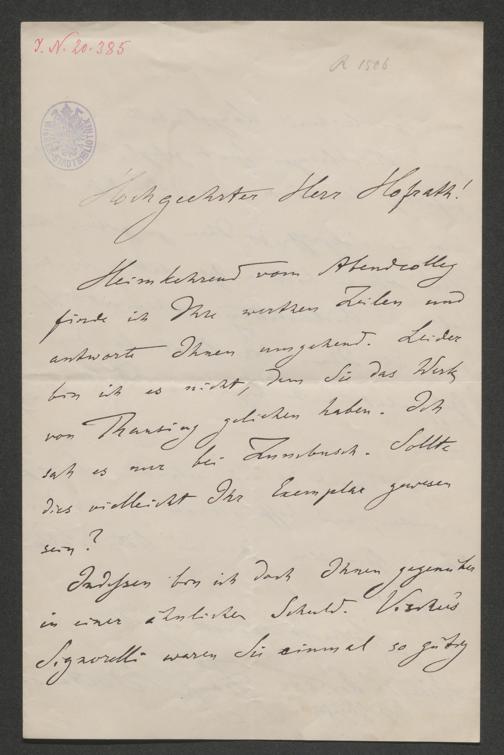 I. N. 20.385
R 1506
WIENER STADTBIBLIOTHEK
Hochgeehrter Herr Hofrath!
Heimkehrend vom Abendcolleg
finde ich Ihre werthen Zeilen und
antworte Ihnen umgehend. Leider
bin ich es nicht, dem Sie das Werk
von Thausing geliehen haben. Ich
sah es nur bei Zumbusch. Sollte
dies vielleicht Ihr Exemplar gewesen
sein?
Indessen bin ich doch Ihnen gegenüber
in einer ähnlichen Schuld. Vischer's
Signorelli waren Sie einmal so gütig